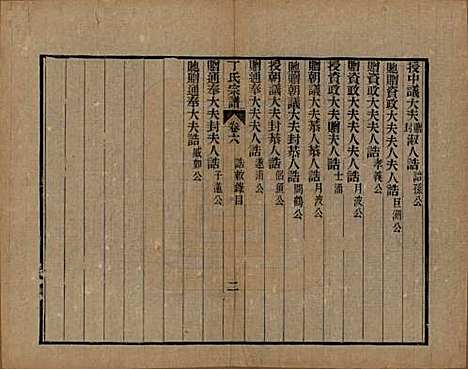 授中議大夫贈封淑人誥 詒孫公
貤贈資政大夫夫人誥 巨湖公
贈資政大夫夫人誥 孝義公
贈資政大夫夫人誥 月波公
授資政大夫夫人誥 士涵
贈朝議大夫恭人誥 月波公
貤贈朝議大夫封恭人誥 問鶴公
授朝議大夫封恭人誥 佑須公
丁氏宗譜 卷六 誥敕錄目 二
贈通奉大夫夫人誥 蓮浦公
贈通奉大夫封夫人誥 子蘧公
貤贈通奉大夫封夫人誥 葳如公